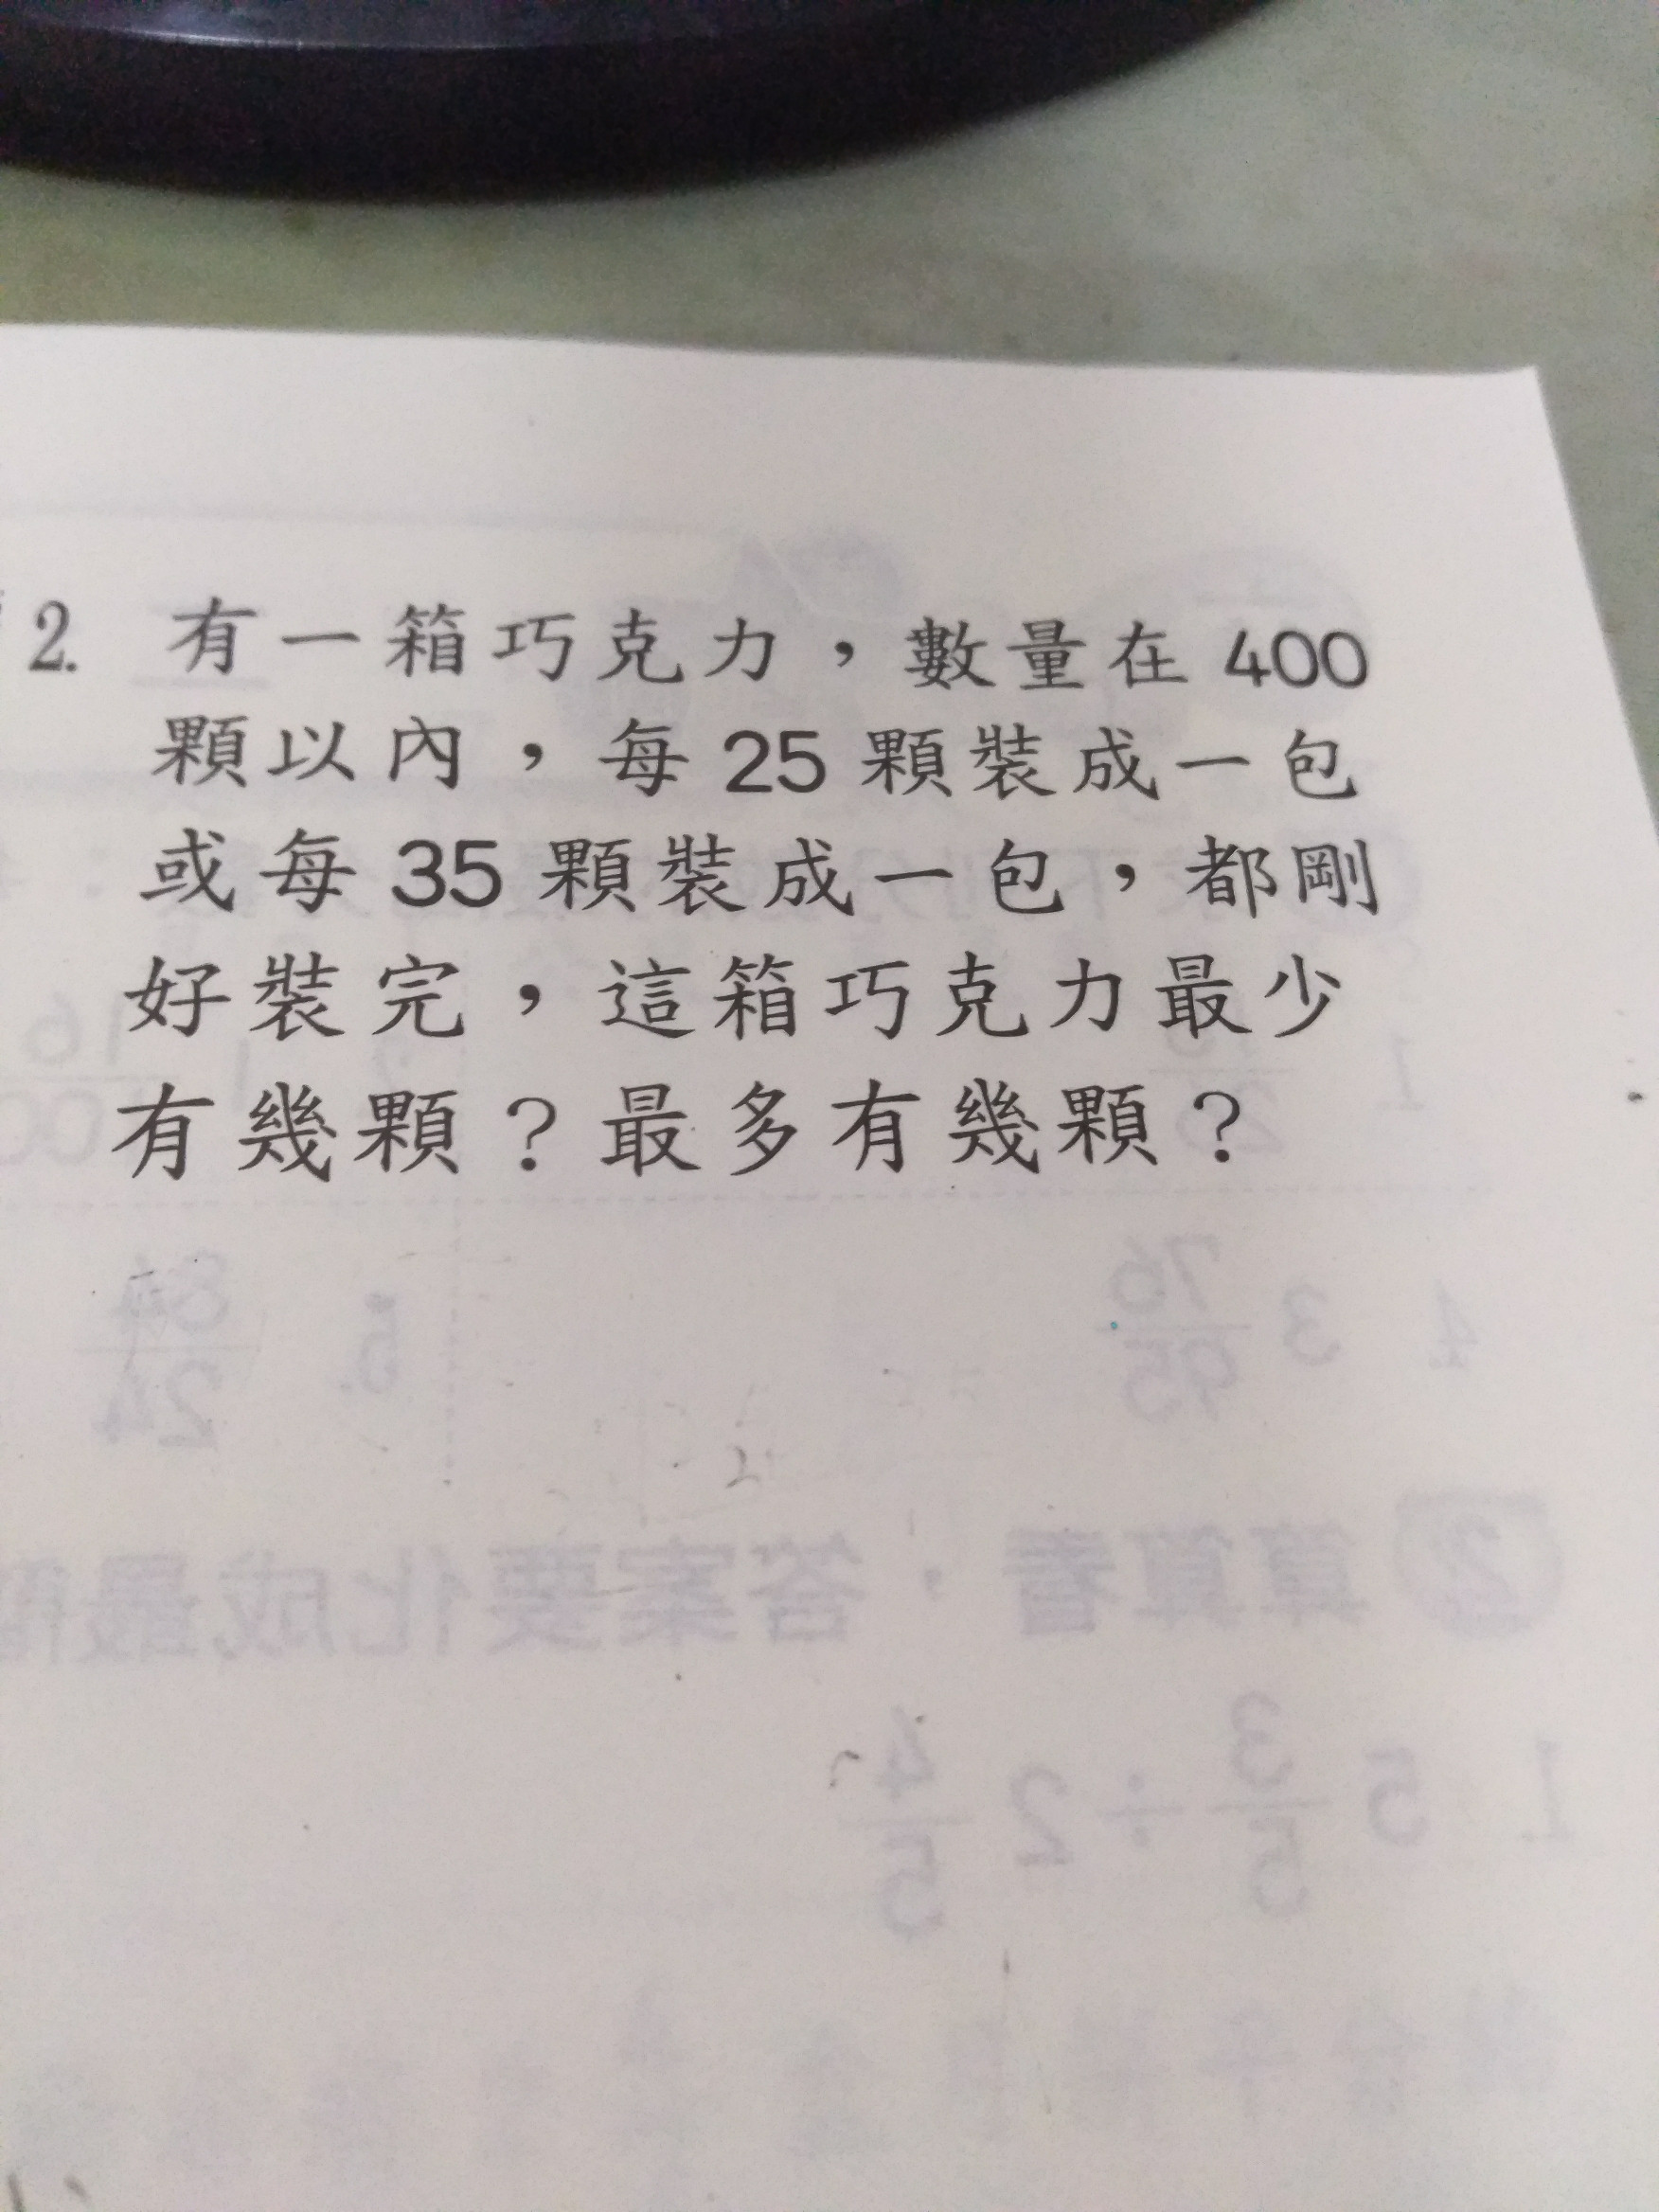 2. 有一箱巧克力，數量在 400
顆以內，每 25 顆裝成一包
或每 35 顆裝成一包，都剛
好裝完，這箱巧克力最少
有幾顆？最多有幾顆？